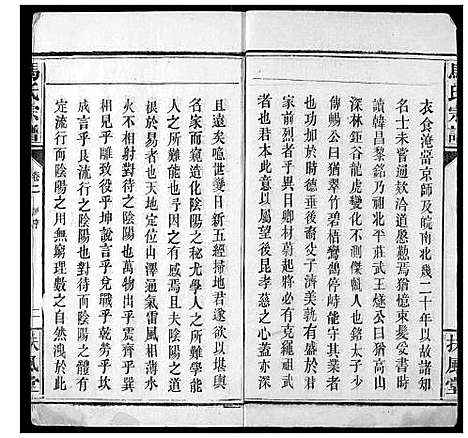 衣食淹留京師及皖南北幾二十年以故諸知
名士未嘗通欸洽道慇懃焉猶憶束髮時
讀韓昌黎銘乃祖北平莊武王燧公曰
深林鉅谷龍虎變化不測傑魁人也銘太子少
傅暢公曰猶翠竹碧梧鸞鵠停峙能守其業者
也父以時德垂後裔父子濟美孰有長於盛於
家前烈者乎異日鄉材蔚起將必有克繩祖武
者也君本此意以屬望後昆孝慈之心蓋亦深
且遠矣嗟世變日新五經掃地君遂欲以堪輿
名家而窺造化陰陽之秘尤學人之所難學能
人之所難能也可不謂之有感焉且夫陰陽之道
根於易者也天地定位山澤通氣雷風相薄水
火不相射對待之也萬物出乎震齊乎巽
相見乎離致役乎坤說言乎兌戰乎乾勞乎坎
成言乎艮流行之也陰陽對待而陰陽之體有
定流行而陰陽之用無窮理數之自然洩於此
馬氏宗譜
卷一
扶風堂
馬氏宗譜
扶風堂